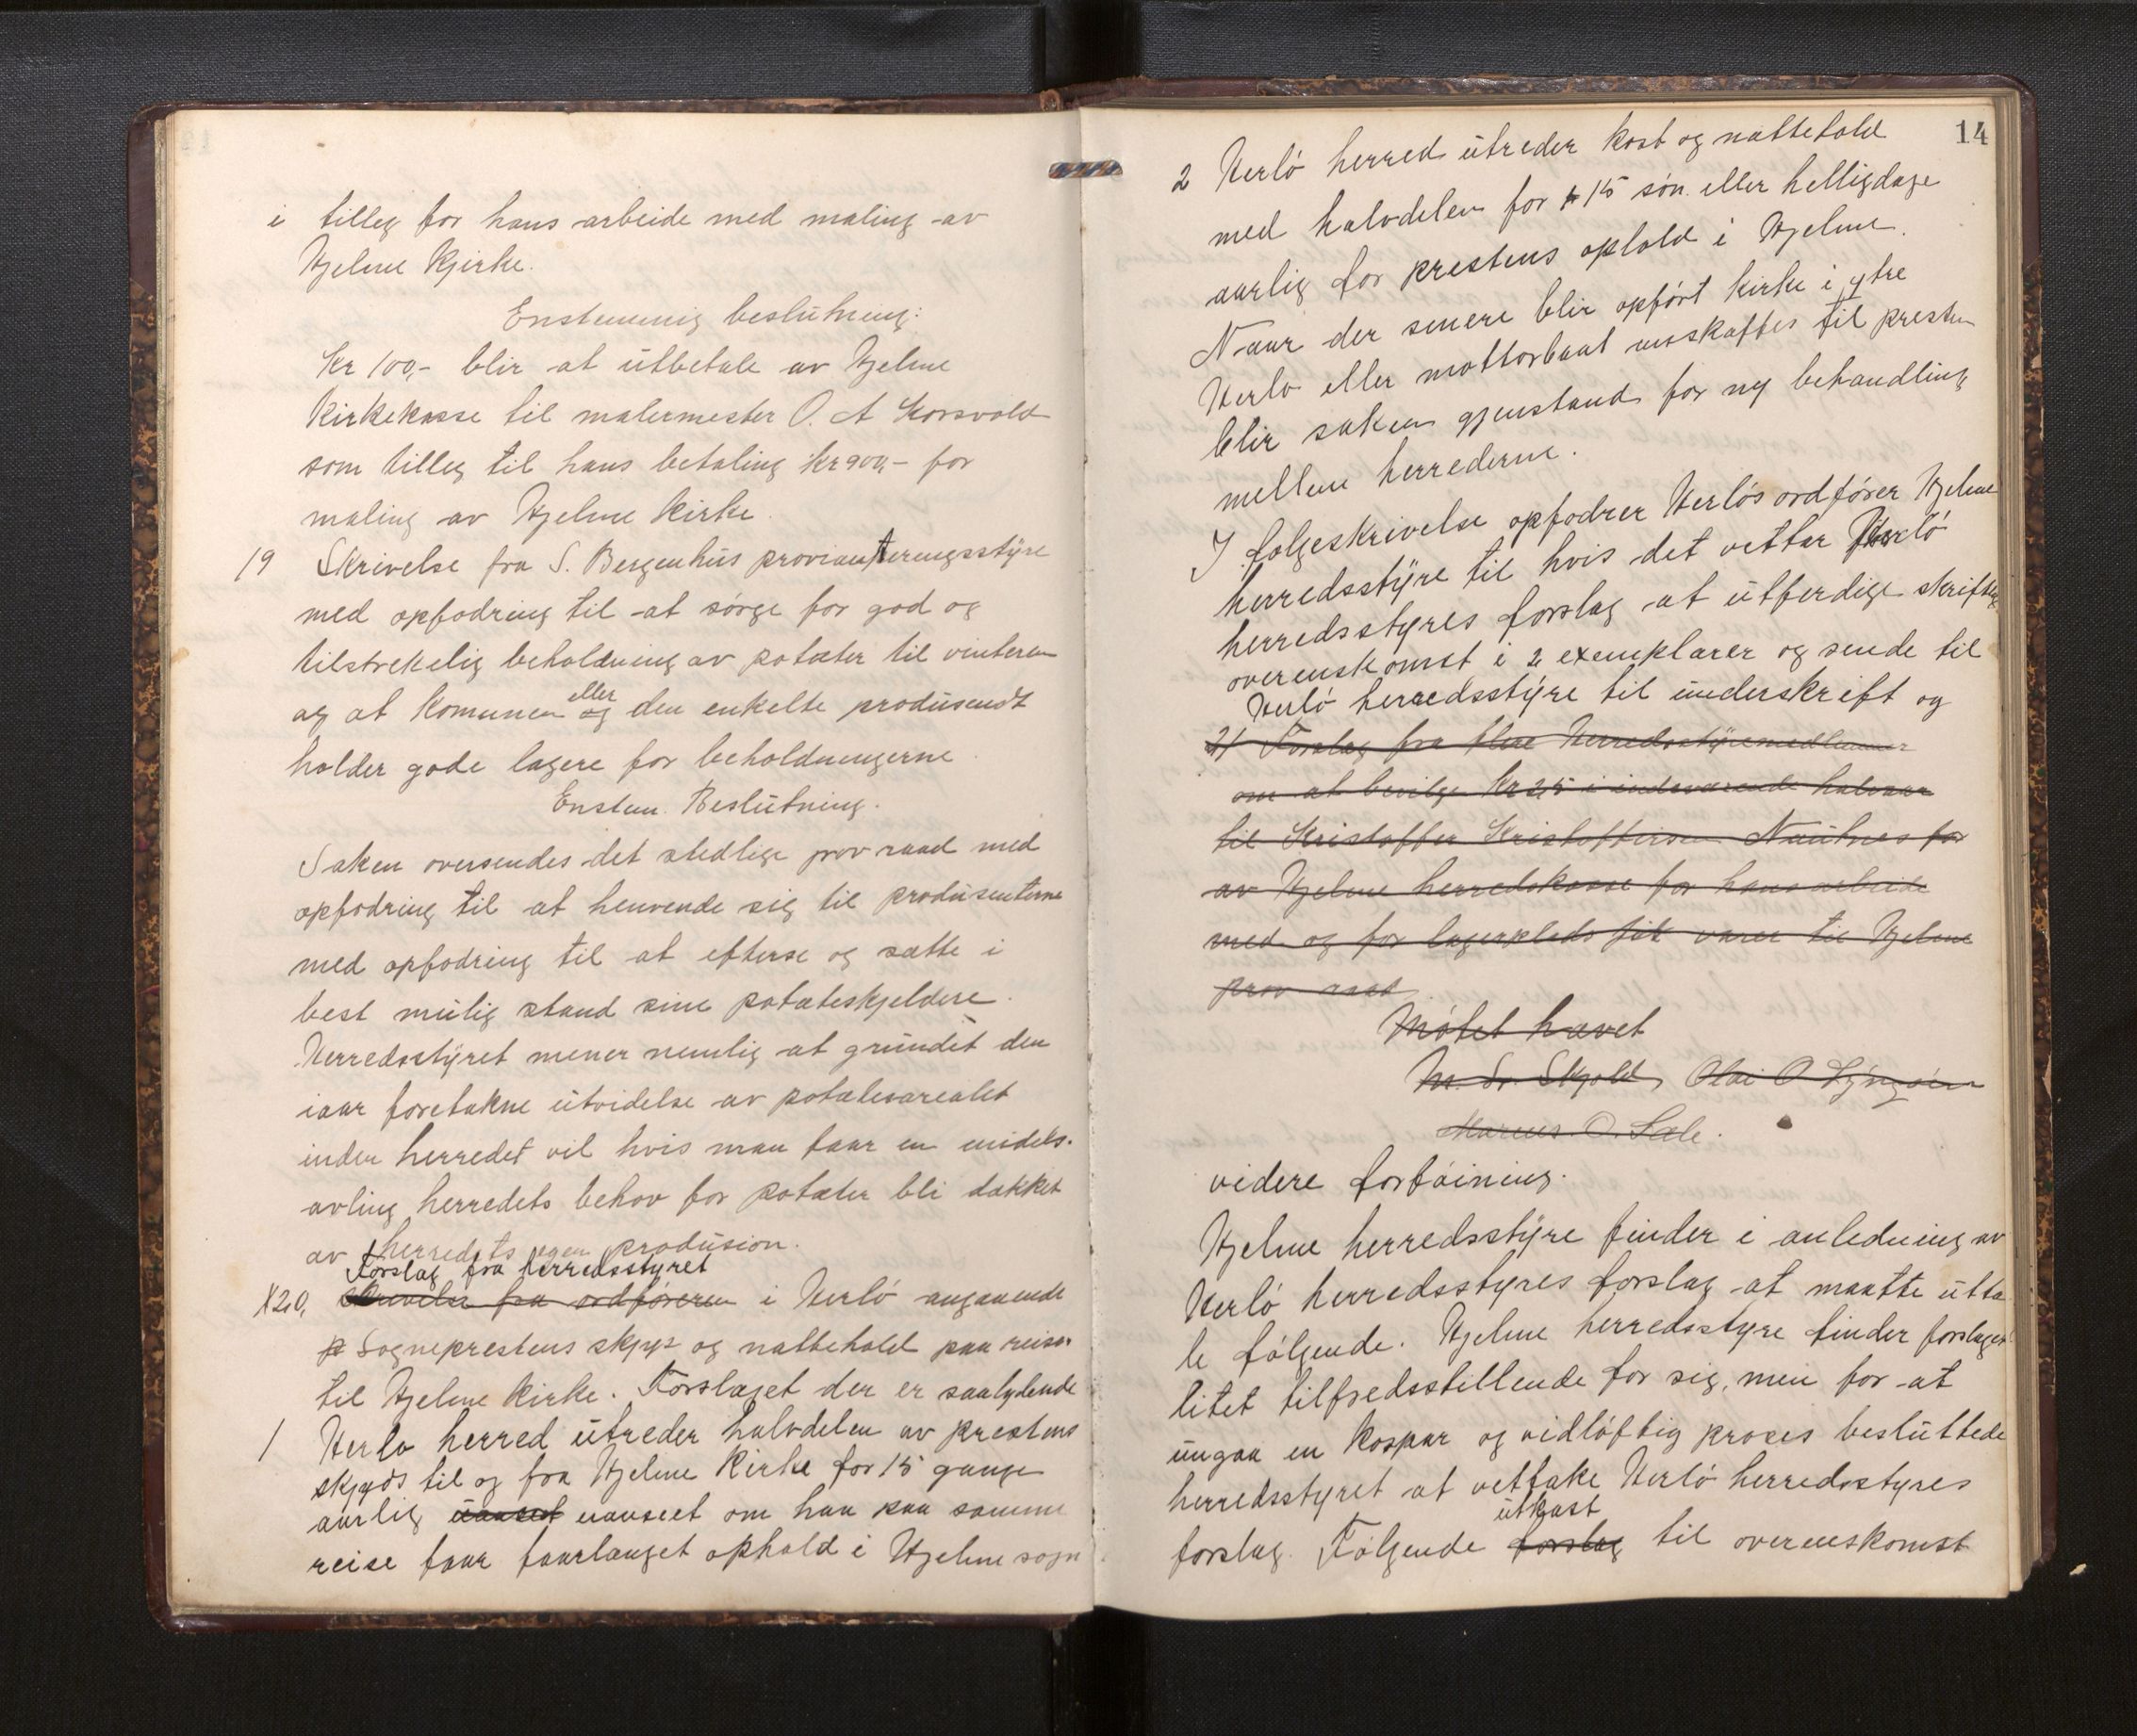 i tilleg for hans arbeide med maling av
Hjelme Kjirke.
Enstemmig beslutning:
Kr 100,- blir at utbetale av Hjelme
Kirkekasse til malermester O. A Korsvold
som tilleg til hans betaling kr 900,- for
maling av Hjelme Kirke.
19 Skrivelse fra S. Bergenhus provianteringsstyre
med opfodring til at sørge for god og
tilstrekelig beholdning av potæter til vinteren
eller
og at Komunen og den enkelte produsendt
holder gode lagere for beholdningerne.
Enstem. Beslutning.
Saken oversendes det stedlige prov raad med
opfodring til at henvende sig til produsenterne
med opfodring til at efterse og sætte i
best mulig stand sine potæteskjeldere.
Herredsstyret mener nemlig at grundet den
iaar foretakne utvidelse av potetesarealet
inden herredet vil hvis man faar en midels.
avling herredets behov for potæter bli dækket
av herredets egen produsion.
Forslag fra herredsstyret
X20, Skrivelse fra ordføreren i Herlø angaaende
p Sogneprestens skyss og nattehold paa reiser
til Hjelme Kirke. Forslaget der er saalydende
1 Herlo herred utreder halvdelen av prestens
skyds til og fra Hjelme Kirke for 15 gange
aarlig uanset uanseet om han paa samme
reise faar faarlænget ophold i Hjelme sogn
14
2 Herlø herred utreder kost og nattehold
med halvdelen for 15 søn. eller helligdage
aarlig for prestens ophold i Hjelme.
Naar der senere blir opført kirke i ytre
Herlo eller mottorbaat anskaffes til presten
blir saken gjenstand for ny behandling
mellem herrederne.
I følgeskrivelse opfodrer Herløs ordfører Hjelme
herredsstyre til hvis det vettar Herlø
herredsstyres forslag at utferdige skriftlig
overenskomst i 2 exemplarer og sende til
Herlø herredsstyre til underskrift og
21 Forslag fra flere Herredsstyremedlemmer
om at bevilge Kr 25 i indeværende halvaar
til Kristoffer Kristoffersen Nautnes for
av Hjelme herredskasse for hans arbeide
med og for lagerplads for varer til Hjelme
prov raad
Møtet hævet
M. Sr. Skjold, Olai O Lyngøen
Marcus. O. Sæle.
videre forføining.
Hjelme herredsstyre finder i anledning av
Herlø herredsstyres forslag at maatte utta
le følgende. Hjelme herredsstyre finder forslaget
litet tilfredsstillende for sig, men for at
ungaa en kospar og vidløftig proses besluttede
herredsstyret at vettake Herlø herredsstyres
utkast
forslag. Følgende forslag til overenskomst